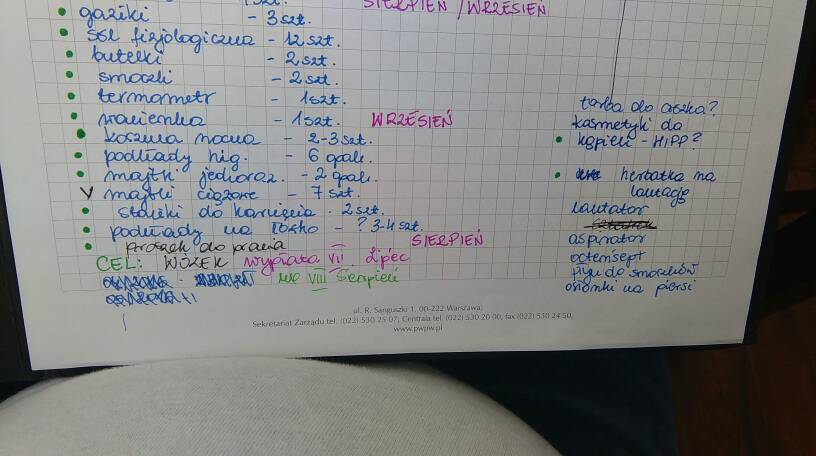 SIERPIEŃ / WRZESIEŃ
gaziki - 3 szt.
sól fizjologiczna - 12 szt.
butelki - 2 szt.
smoczki - 2 szt.
termometr - 1 szt.
wanienka - 1 szt. WRZESIEŃ
koszula nocna - 2-3 szt.
podkłady hig. - 6 opak.
majtki jednoraz. - 2 opak.
majtki ciążowe - 7 szt.
staniki do karmienia - 2 szt.
podkłady na łóżko - ? 3-4 szt.
proszek do prania SIERPIEŃ
CEL: WÓZEK wypłata VII Lipiec
VIII Sierpień
torba do
kosmetyki do
kąpieli - HIPP?
herbatka na
laktację
laktator
aspirator
octenisept
płyn do smoczków
osłonki na piersi
ul. R. Sanguszki 1, 00-222 Warszawa,
Sekretariat Zarządu tel. (022) 530 25 07, Centrala tel. (022) 530 20 00, fax (022) 530 24 50,
www.pwpw.pl